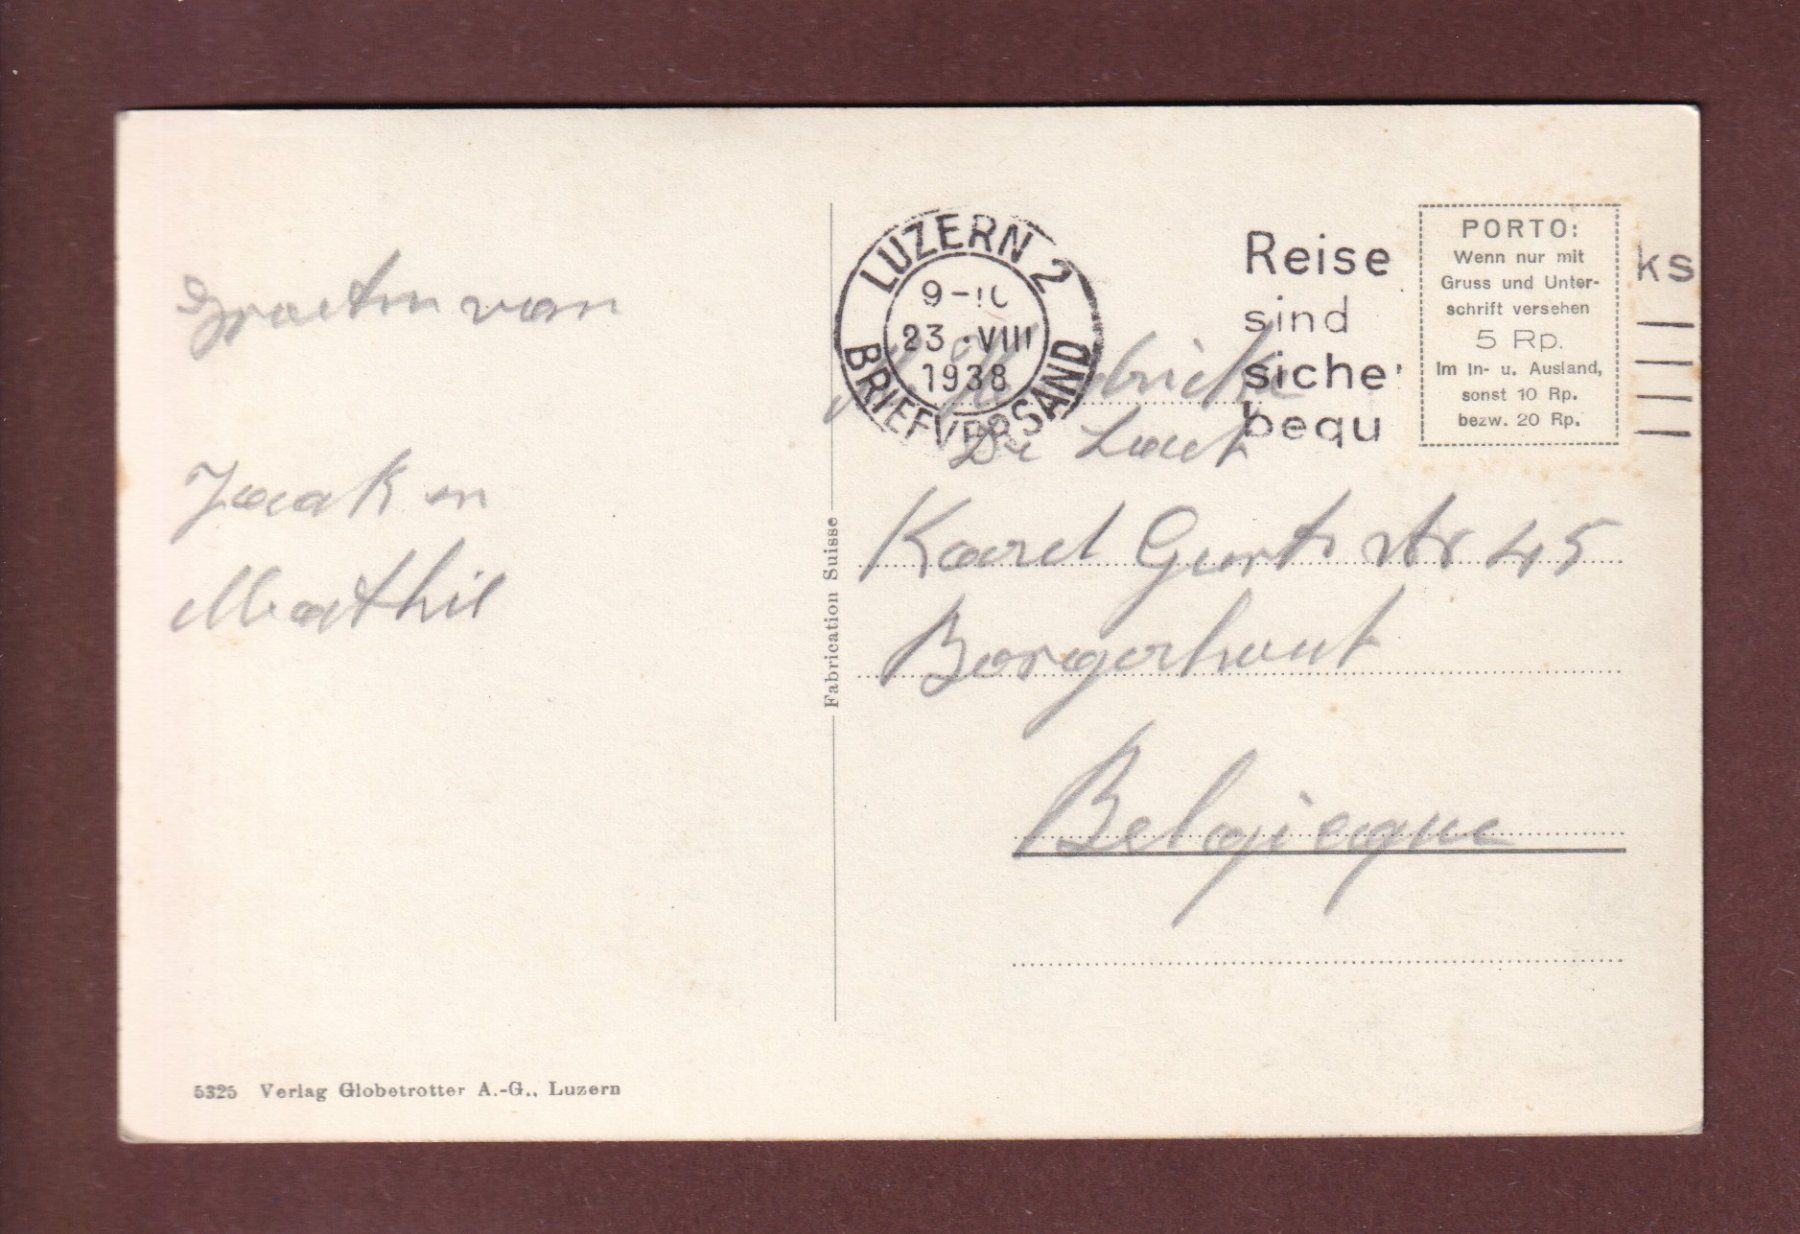 Groeten van
Jaak en
Mathil
5325 Verlag Globetrotter A.-G., Luzern
Fabrication Suisse
LUZERN 2
9-10
23. VIII
1938
BRIEFVERSAND
Reise ks
sind
siche
bequ
PORTO:
Wenn nur mit
Gruss und Unter-
schrift versehen
5 Rp.
Im In- u. Ausland,
sonst 10 Rp.
bezw. 20 Rp.
De Laet
Karel Geert str 45
Borgerhout
Belgieque